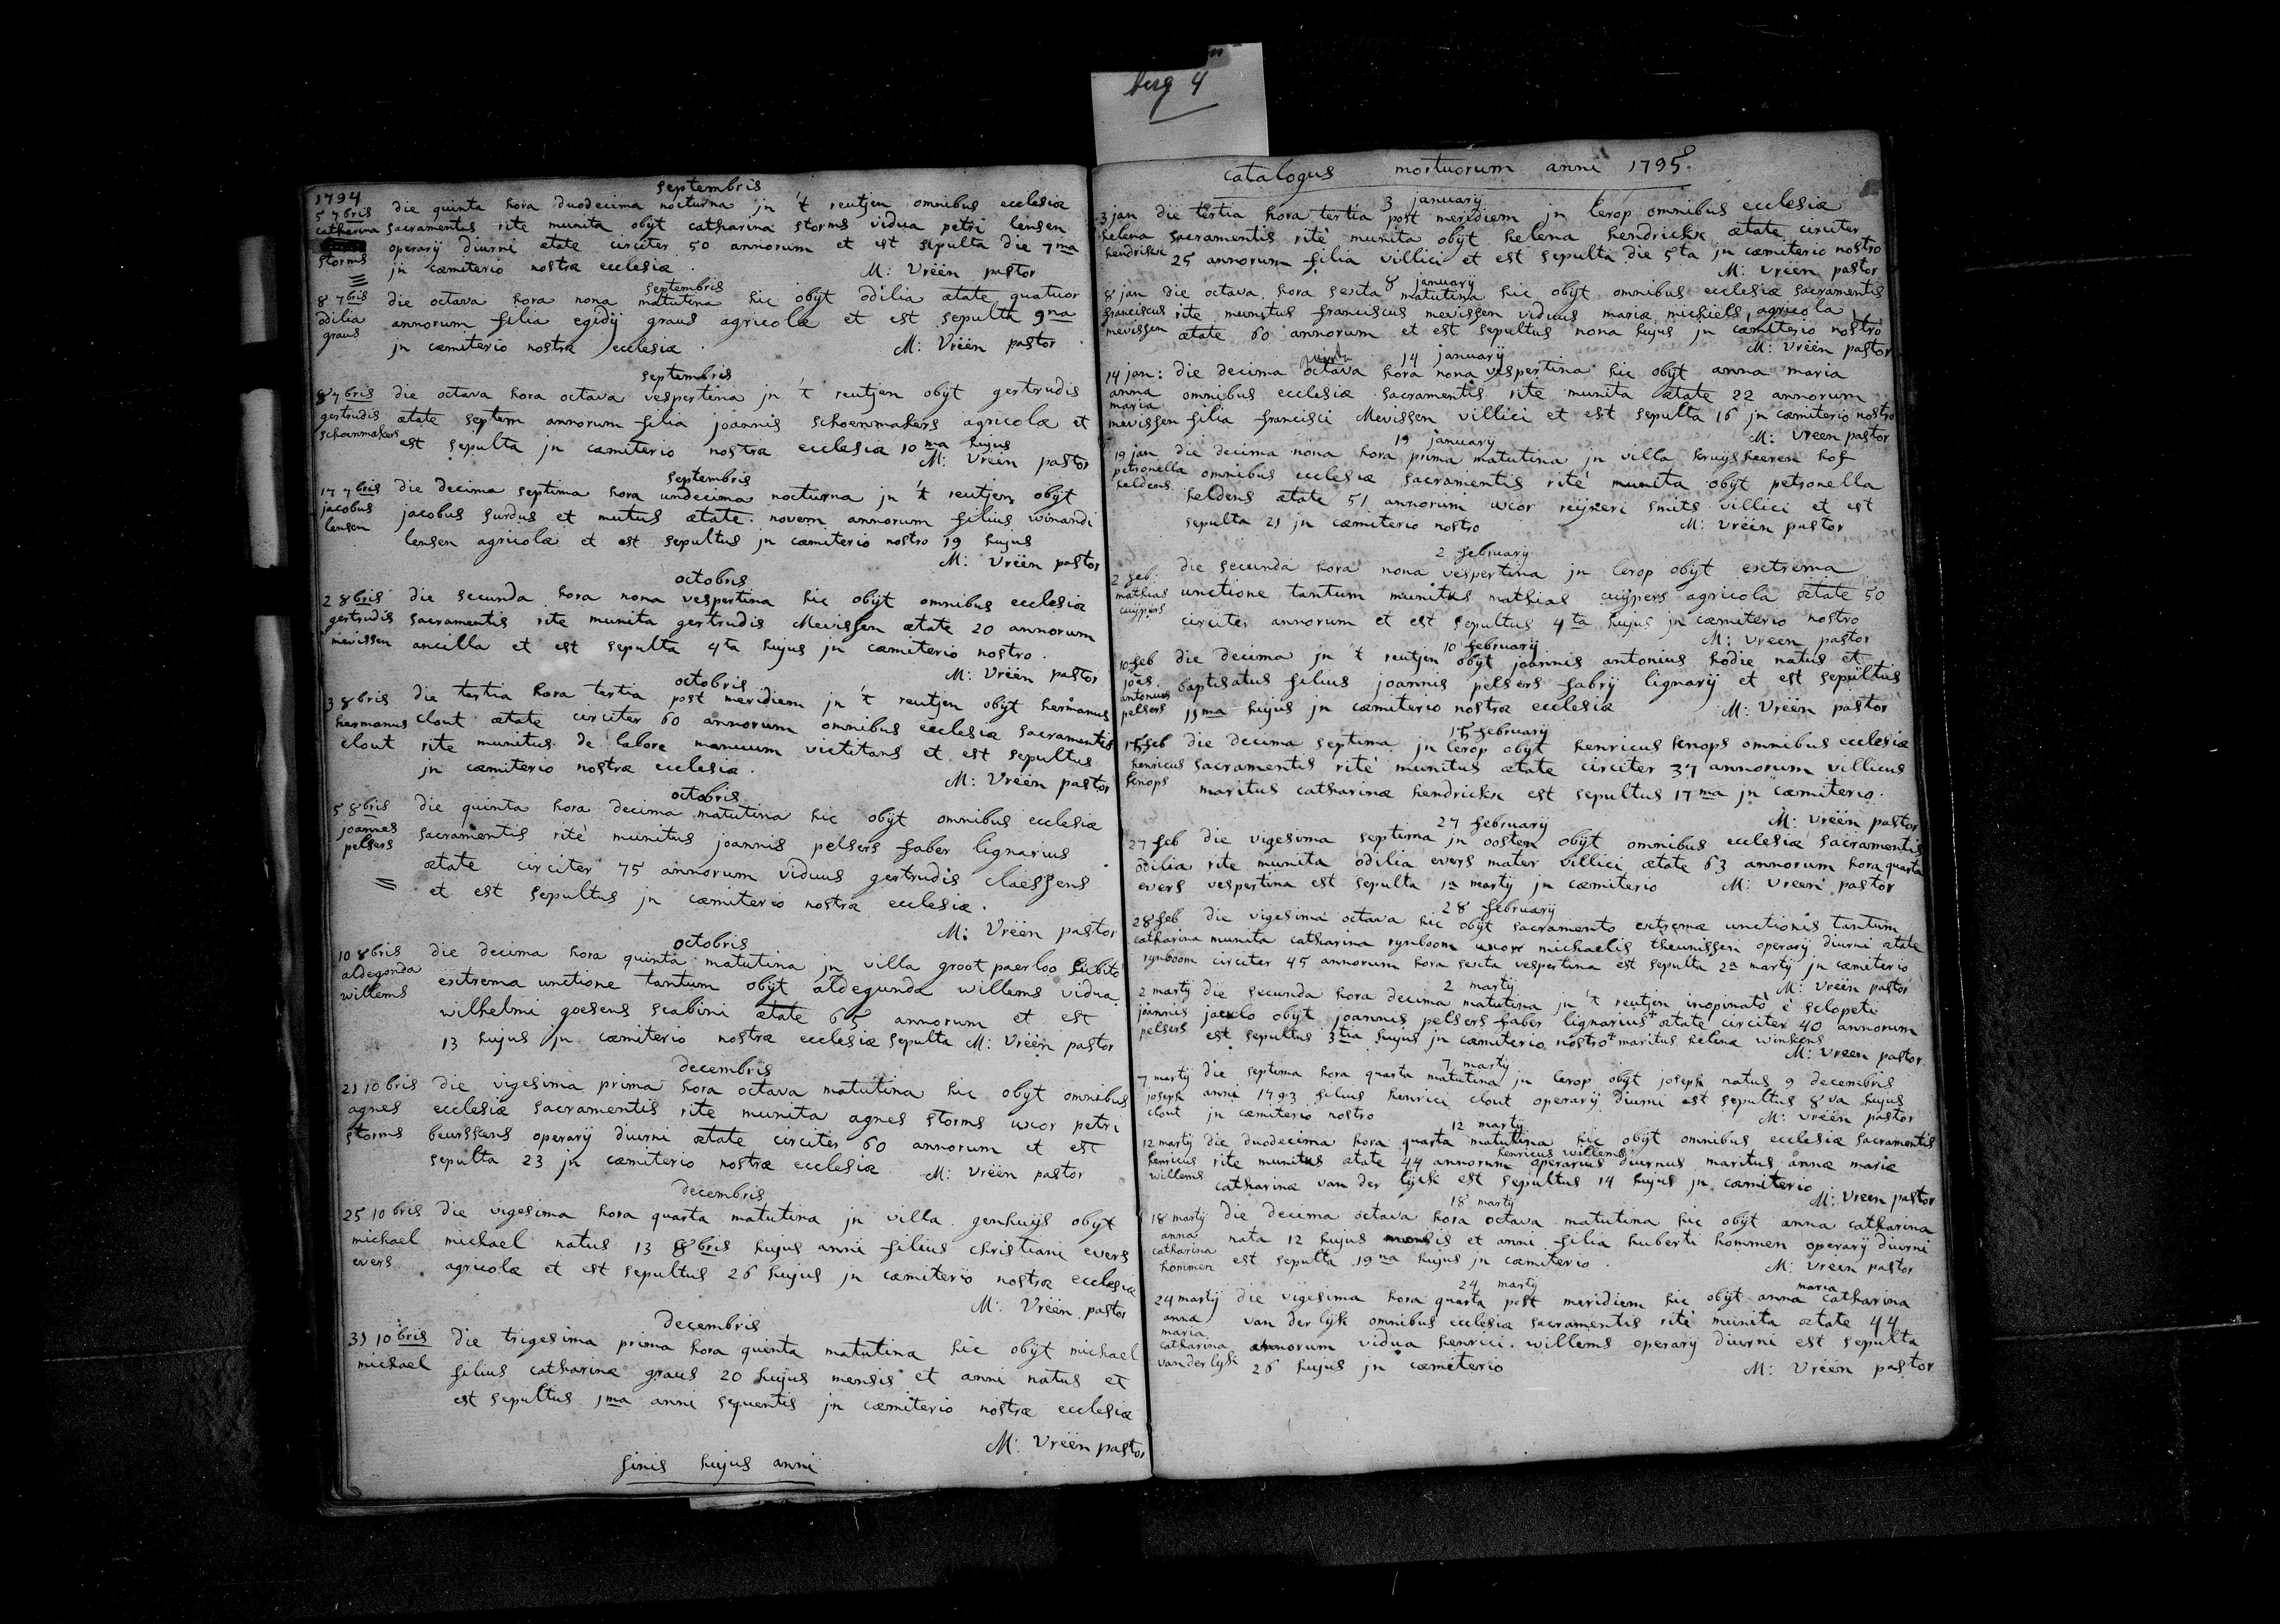 berg 4
1794
septembris
5 7bris die quinta hora duodecima nocturna jn 't reutjen omnibus ecclesiæ
catharina sacramentis rite munita obijt catharina storms vidua petri lensen
operarij diurni ætate circiter 50 annorum et est sepulta die 7ma
storms jn cæmiterio nostræ ecclesiæ. M: Vrëën pastor
septembris
8 7bris die octava hora nona matutina hic obijt odilia ætate quatuor
odilia annorum filia egidij graus agricolæ et est sepulta 9na
graus jn cæmiterio nostræ ecclesiæ. M: Vrëën pastor
septembris
8 7bris die octava hora octava vespertina jn 't reutjen obijt gertrudis
gertrudis ætate septem annorum filia joannis schoenmakers agricolæ et
schoenmakers est sepulta jn cæmiterio nostræ ecclesiæ 10ma hujus
M: Vrëën pastor
septembris
17 7bris die decima septima hora undecima nocturna jn 't reutjen obijt
jacobus jacobus surdus et mutus ætate novem annorum filius winandi
lensen lensen agricolæ et est sepultus jn cæmiterio nostro 19 hujus
M: Vrëën pastor
octobris
2 8bris die secunda hora nona vespertina hic obijt omnibus ecclesiæ
gertrudis sacramentis rite munita gertrudis Mevissen ætate 20 annorum
mevissen ancilla et est sepulta 4ta hujus jn cæmiterio nostro.
M: Vrëën pastor
octobris
3 8bris die tertia hora tertia post meridiem jn 't reutjen obijt hermanus
hermanus clout ætate circiter 60 annorum omnibus ecclesiæ sacramentis
clout rite munitus de labore manuum victitans et est sepultus
jn cæmiterio nostræ ecclesiæ.
M: Vrëën pastor
octobris
5 8bris die quinta hora decima matutina hic obijt omnibus ecclesiæ
joannes sacramentis ritè munitus joannis pelsers faber lignarius
pelsers ætate circiter 75 annorum viduus gertrudis claessens
et est sepultus jn cæmiterio nostræ ecclesiæ.
M: Vrëën pastor
octobris
10 8bris die decima hora quinta matutina jn villa groot paerloo subitò
aldegonda extrema unctione tantum obijt aldegunda willems vidua
willems wilhelmi goesens scabini ætate 65 annorum et est
13 hujus jn cæmiterio nostræ ecclesiæ sepulta M: Vrëën pastor
decembris
21 10bris die vigesima prima hora octava matutina hic obijt omnibus
agnes ecclesiæ sacramentis rite munita agnes storms uxor petri
storms beursskens operarij diurni ætate circiter 60 annorum et est
sepulta 23 jn cæmiterio nostræ ecclesiæ M: Vrëën pastor
decembris
25 10bris die vigesima hora quarta matutina jn villa genhuijs obijt
michael michael natus 13 8bris hujus anni filius christiani evers
evers agricolæ et est sepultus 26 hujus jn cæmiterio nostræ ecclesiæ
M: Vrëën pastor
decembris
31 10bris die trigesima prima hora quinta matutina hic obijt michael
michael filius catharinæ graus 20 hujus mensis et anni natus et
est sepultus 1ma anni sequentis jn cæmiterio nostræ ecclesiæ
M: Vrëën pastor
finis hujus anni
catalogus mortuorum anni 1795.
3 januarij
3 jan die tertia hora tertia post meridiem jn lerop omnibus ecclesiæ
helena sacramentis ritè munita obijt helena hendrickx ætate circiter
hendrikx 25 annorum filia villici et est sepulta die 5ta jn cæmiterio nostro
M: Vrëën pastor
8 januarij
8 jan die octava hora sexta matutina hic obijt omnibus ecclesiæ sacramentis
franciscus rite munitus franciscus mevissen viduus mariæ michiels, agricola,
mevissen ætate 60 annorum et est sepultus nona hujus jn cæmiterio nostro
M: Vrëën pastor
14 januarij
14 jan: die decima octava hora nona vespertina hic obijt anna maria
anna omnibus ecclesiæ sacramentis rite munita ætate 22 annorum
maria
mevissen filia francisci Mevissen villici et est sepulta 16 jn cæmiterio nostro
M: Vrëën pastor
19 januarij
19 jan die decima nona hora prima matutina jn villa kruijsheeren hof
petronella omnibus ecclesiæ sacramentis ritè munita obijt petronella
heldens heldens ætate 51 annorum uxor reijneri smits villici et est
sepulta 21 jn cæmiterio nostro M: Vrëën pastor
2 februarij
2 feb: die secunda hora nona vespertina jn lerop obijt extrema
mathias unctione tantum munitus mathias cuijpers agricola ætate 50
cuijpers circiter annorum et est sepultus 4ta hujus jn cæmiterio nostro
M: Vrëën pastor
10 februarij
10 feb die decima jn 't reutjen obijt joannis antonius hodie natus et
joës baptisatus filius joannis pelsers fabrij lignarij et est sepultus
antonius
pelsers 11ma hujus jn cæmiterio nostræ ecclesiæ M: Vrëën pastor
15 februarij
15 feb die decima septima jn lerop obijt henricus knops omnibus ecclesiæ
henricus sacramentis ritè munitus ætate circiter 37 annorum villicus
knops maritus catharinæ hendrickx est sepultus 17ma jn cæmiterio.
M: Vrëën pastor
27 februarij
27 feb die vigesima septima jn oosten obijt omnibus ecclesiæ sacramentis
odilia rite munita odilia evers mater villici ætate 63 annorum hora quarta
evers vespertina est sepulta 1a martij jn cæmiterio M: Vrëën pastor
28 februarij
28 feb die vigesima octava hic obijt sacramento extremæ unctionis tantum
catharina munita catharina rynboom uxor michaelis theunissen operarij diurni ætate
rynboom circiter 45 annorum hora sexta vespertina est sepulta 2a martij jn cæmiterio
M: Vrëën pastor
2 martij
2 martij die secunda hora decima matutina jn 't reutjen inopinatò è sclopeti
joannis jaculo obijt joannis pelsers faber lignarius + ætate circiter 40 annorum
pelsers est sepultus 3tia hujus jn cæmiterio nostro + maritus helenæ winkens
M: Vrëën pastor
7 martij
7 martij die septima hora quarta matutina jn lerop obijt joseph natus 9 decembris
joseph anni 1793 filius henrici clout operarij diurni est sepultus 8va hujus
clout jn cæmiterio nostro M: Vrëën pastor
12 martij
12 martij die duodecima hora quarta matutina hic obijt omnibus ecclesiæ sacramentis
henricus willems
henricus rite munitus ætate 44 annorum operarius diurnus maritus annæ mariæ
willems catharinæ van der lijck est sepultus 14 hujus jn cæmiterio
M: Vrëën pastor
18 martij
18 martij die decima octava hora octava matutina hic obijt anna catharina
anna nata 12 hujus mensis et anni filia huberti hommen operarij diurni
catharina
hommen est sepulta 19na hujus jn cæmiterio. M: Vrëën pastor
24 martij
maria
24 martij die vigesima hora quarta post meridiem hic obijt anna catharina
anna van der lijk omnibus ecclesiæ sacramentis ritè munita ætate 44
maria
catharina annorum vidua henrici willems operarij diurni est sepulta
van der lijk 26 hujus jn cæmiterio M: Vrëën pastor